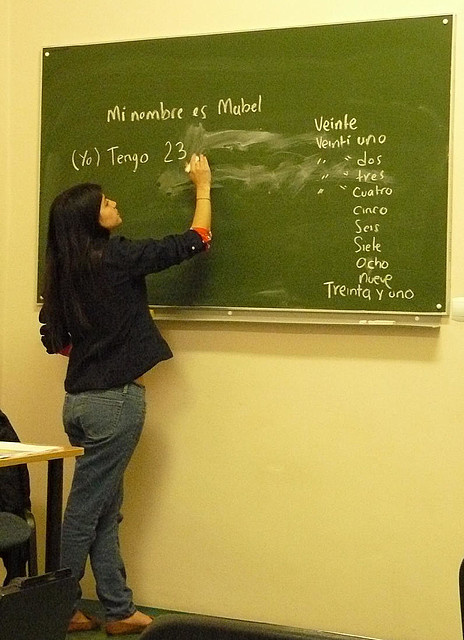 Mi nombre es Mabel
(Yo) Tengo 23
Veinte
Veinti uno
" " dos
" " tres
" " cuatro
cinco
Seis
Siete
Ocho
nueve
Treinta y uno